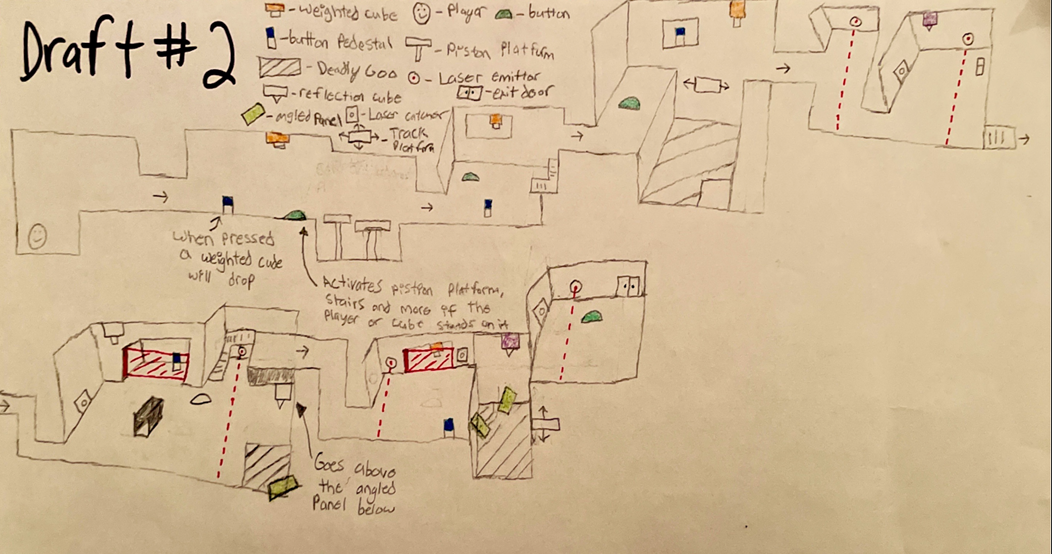 Draft #2
- weighted cube - Player - button
- button Pedestal - Piston Platform
- Deadly Goo - Laser emittor
- reflection cube - exit door
- angled Panel - Laser catcher
- Track
Platform
When pressed
a weighted cube
will drop
Activates pistton platform,
Stairs and more if the
Player or cube stands on it
Goes above
the angled
Panel below